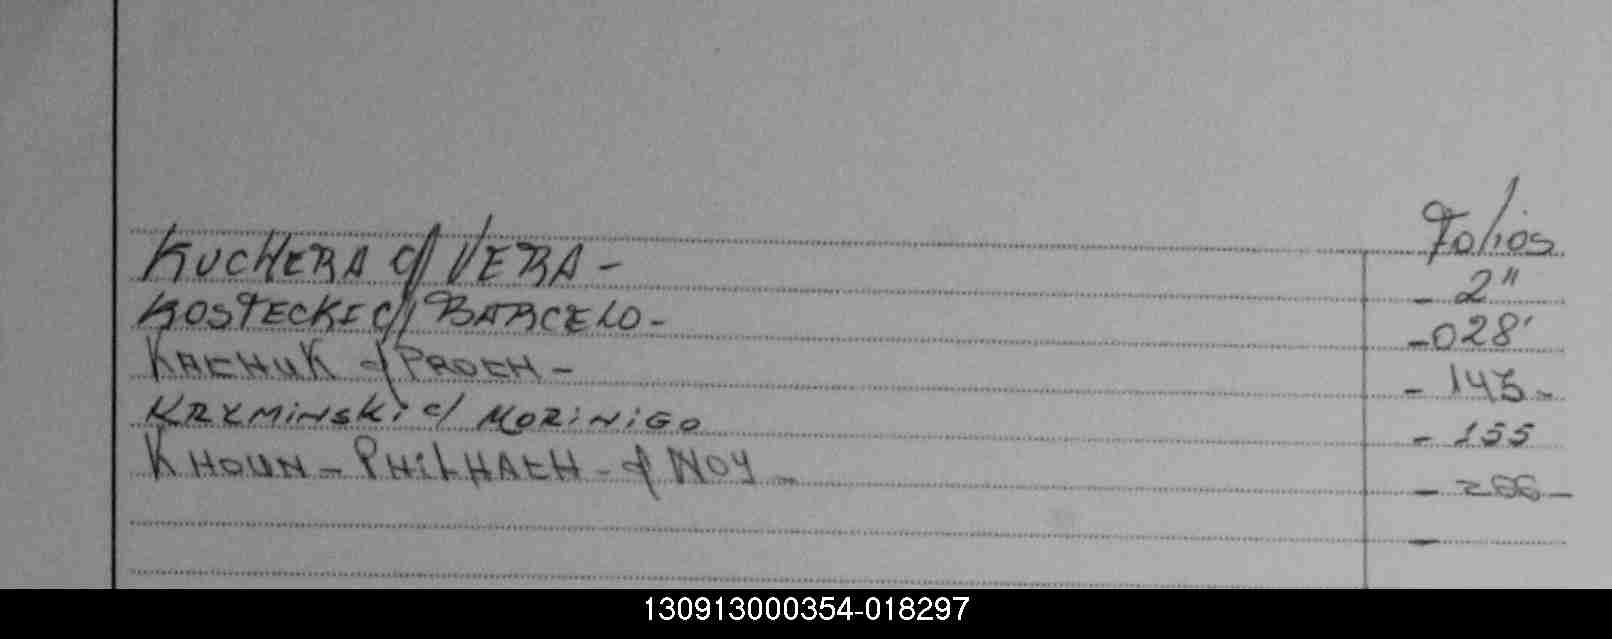 Folios
KUCHERA c/ VERA - 2"
KOSTECKI c/ BARCELO - - 028'
KACHUK c/ PROCH - - 143 -
KRYMINSKI c/ MORINIGO - 155
KHOUN - PHILHACH - c/ NOY - - 266 -
-
130913000354-018297